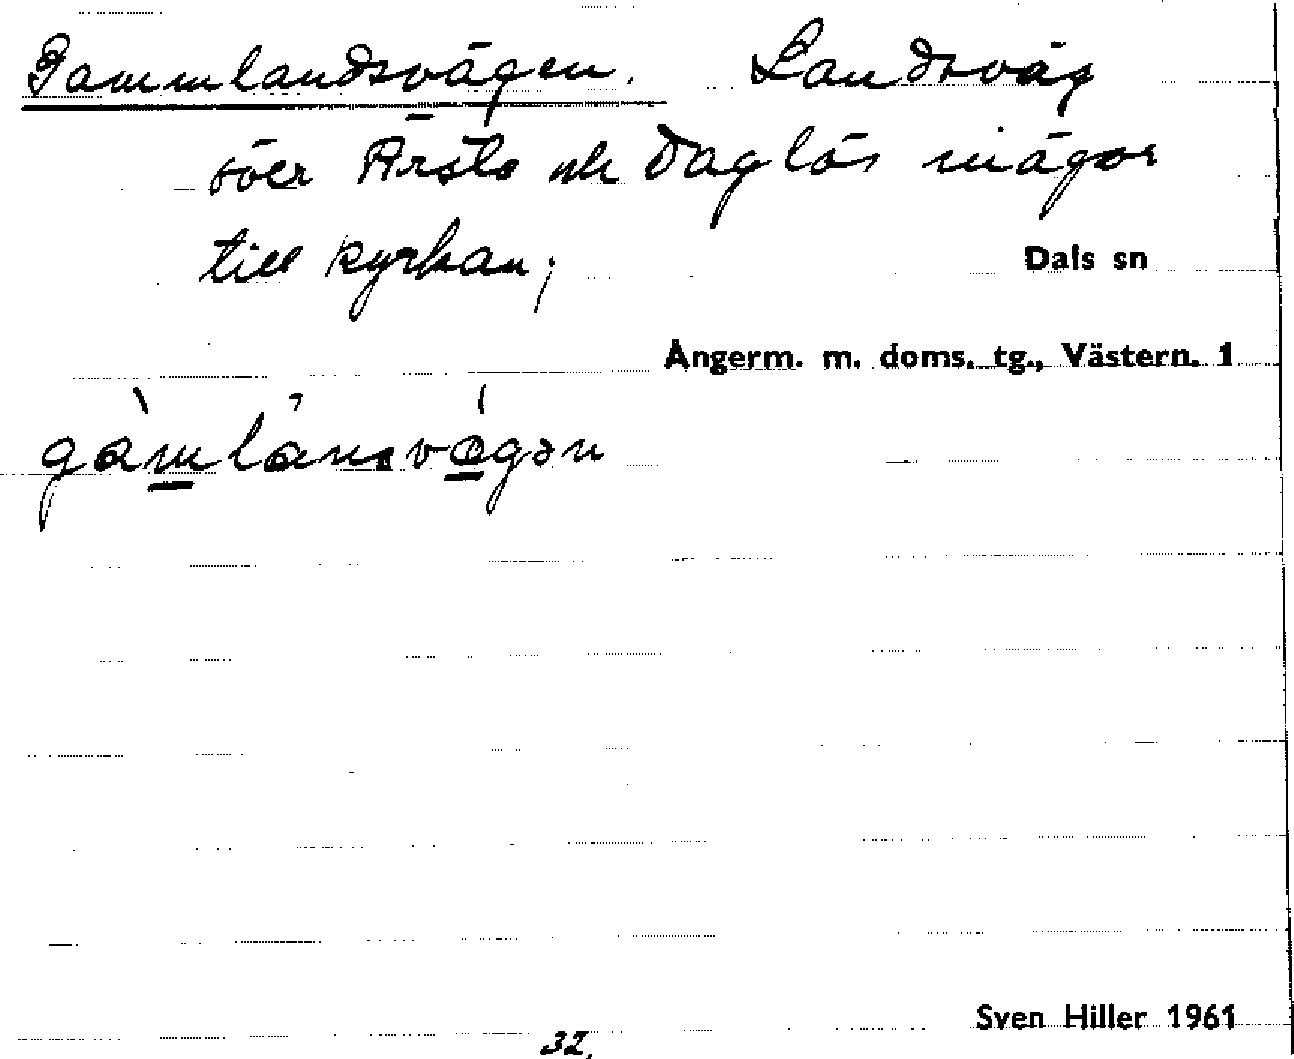 Gammlandsvägen. Landsväg
över Ärste och Daglös inägor
till kyrkan;
Dals sn
Ångerm. m. doms. tg., Västern. 1
gàmlánsvägən
32.
Sven Hiller 1961